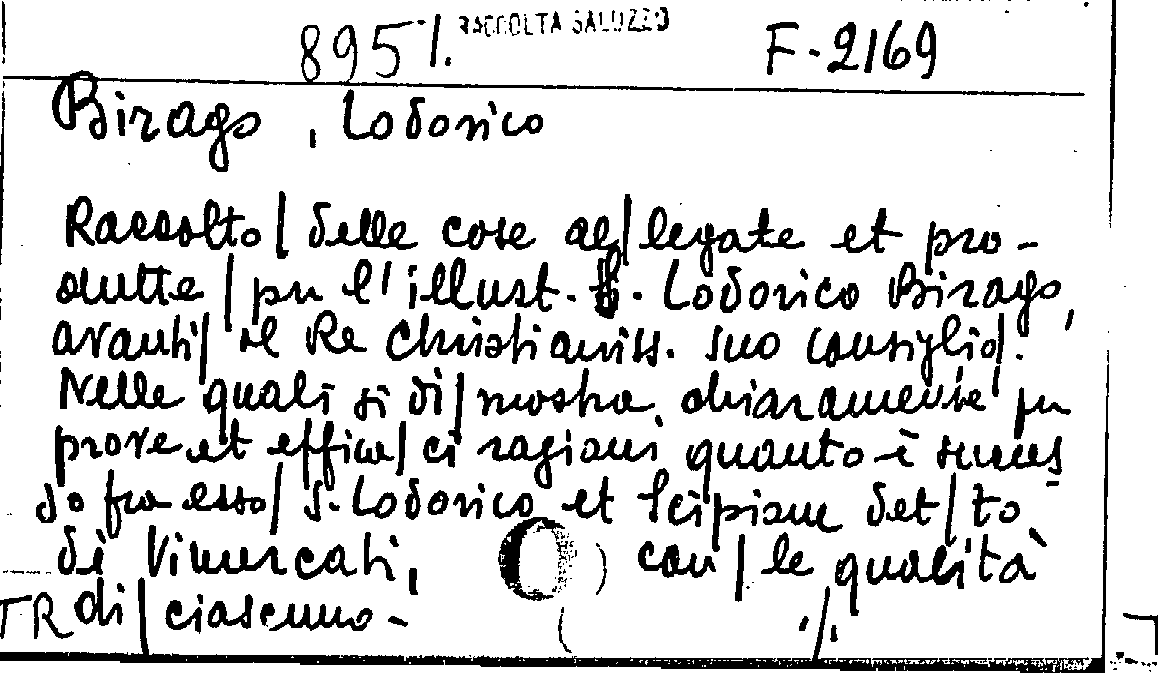 895 ./. RACCOLTA SALUZZO F-2169
Birago, Lodovico
Raccolto/ delle cose al/legate et pro-
dutte/ per l'illust. S. Lodovico Birago,
avanti/ al Re Christianiss. suo consiglio/.
Nelle quali si di/mostra chiaramente per
prove et effica/ci ragioni quanto è succes
so fra esso/ S. Lodovico et Scipione det/to
di Vimercati, con/ le qualità
TR di/ ciascuno-
./.